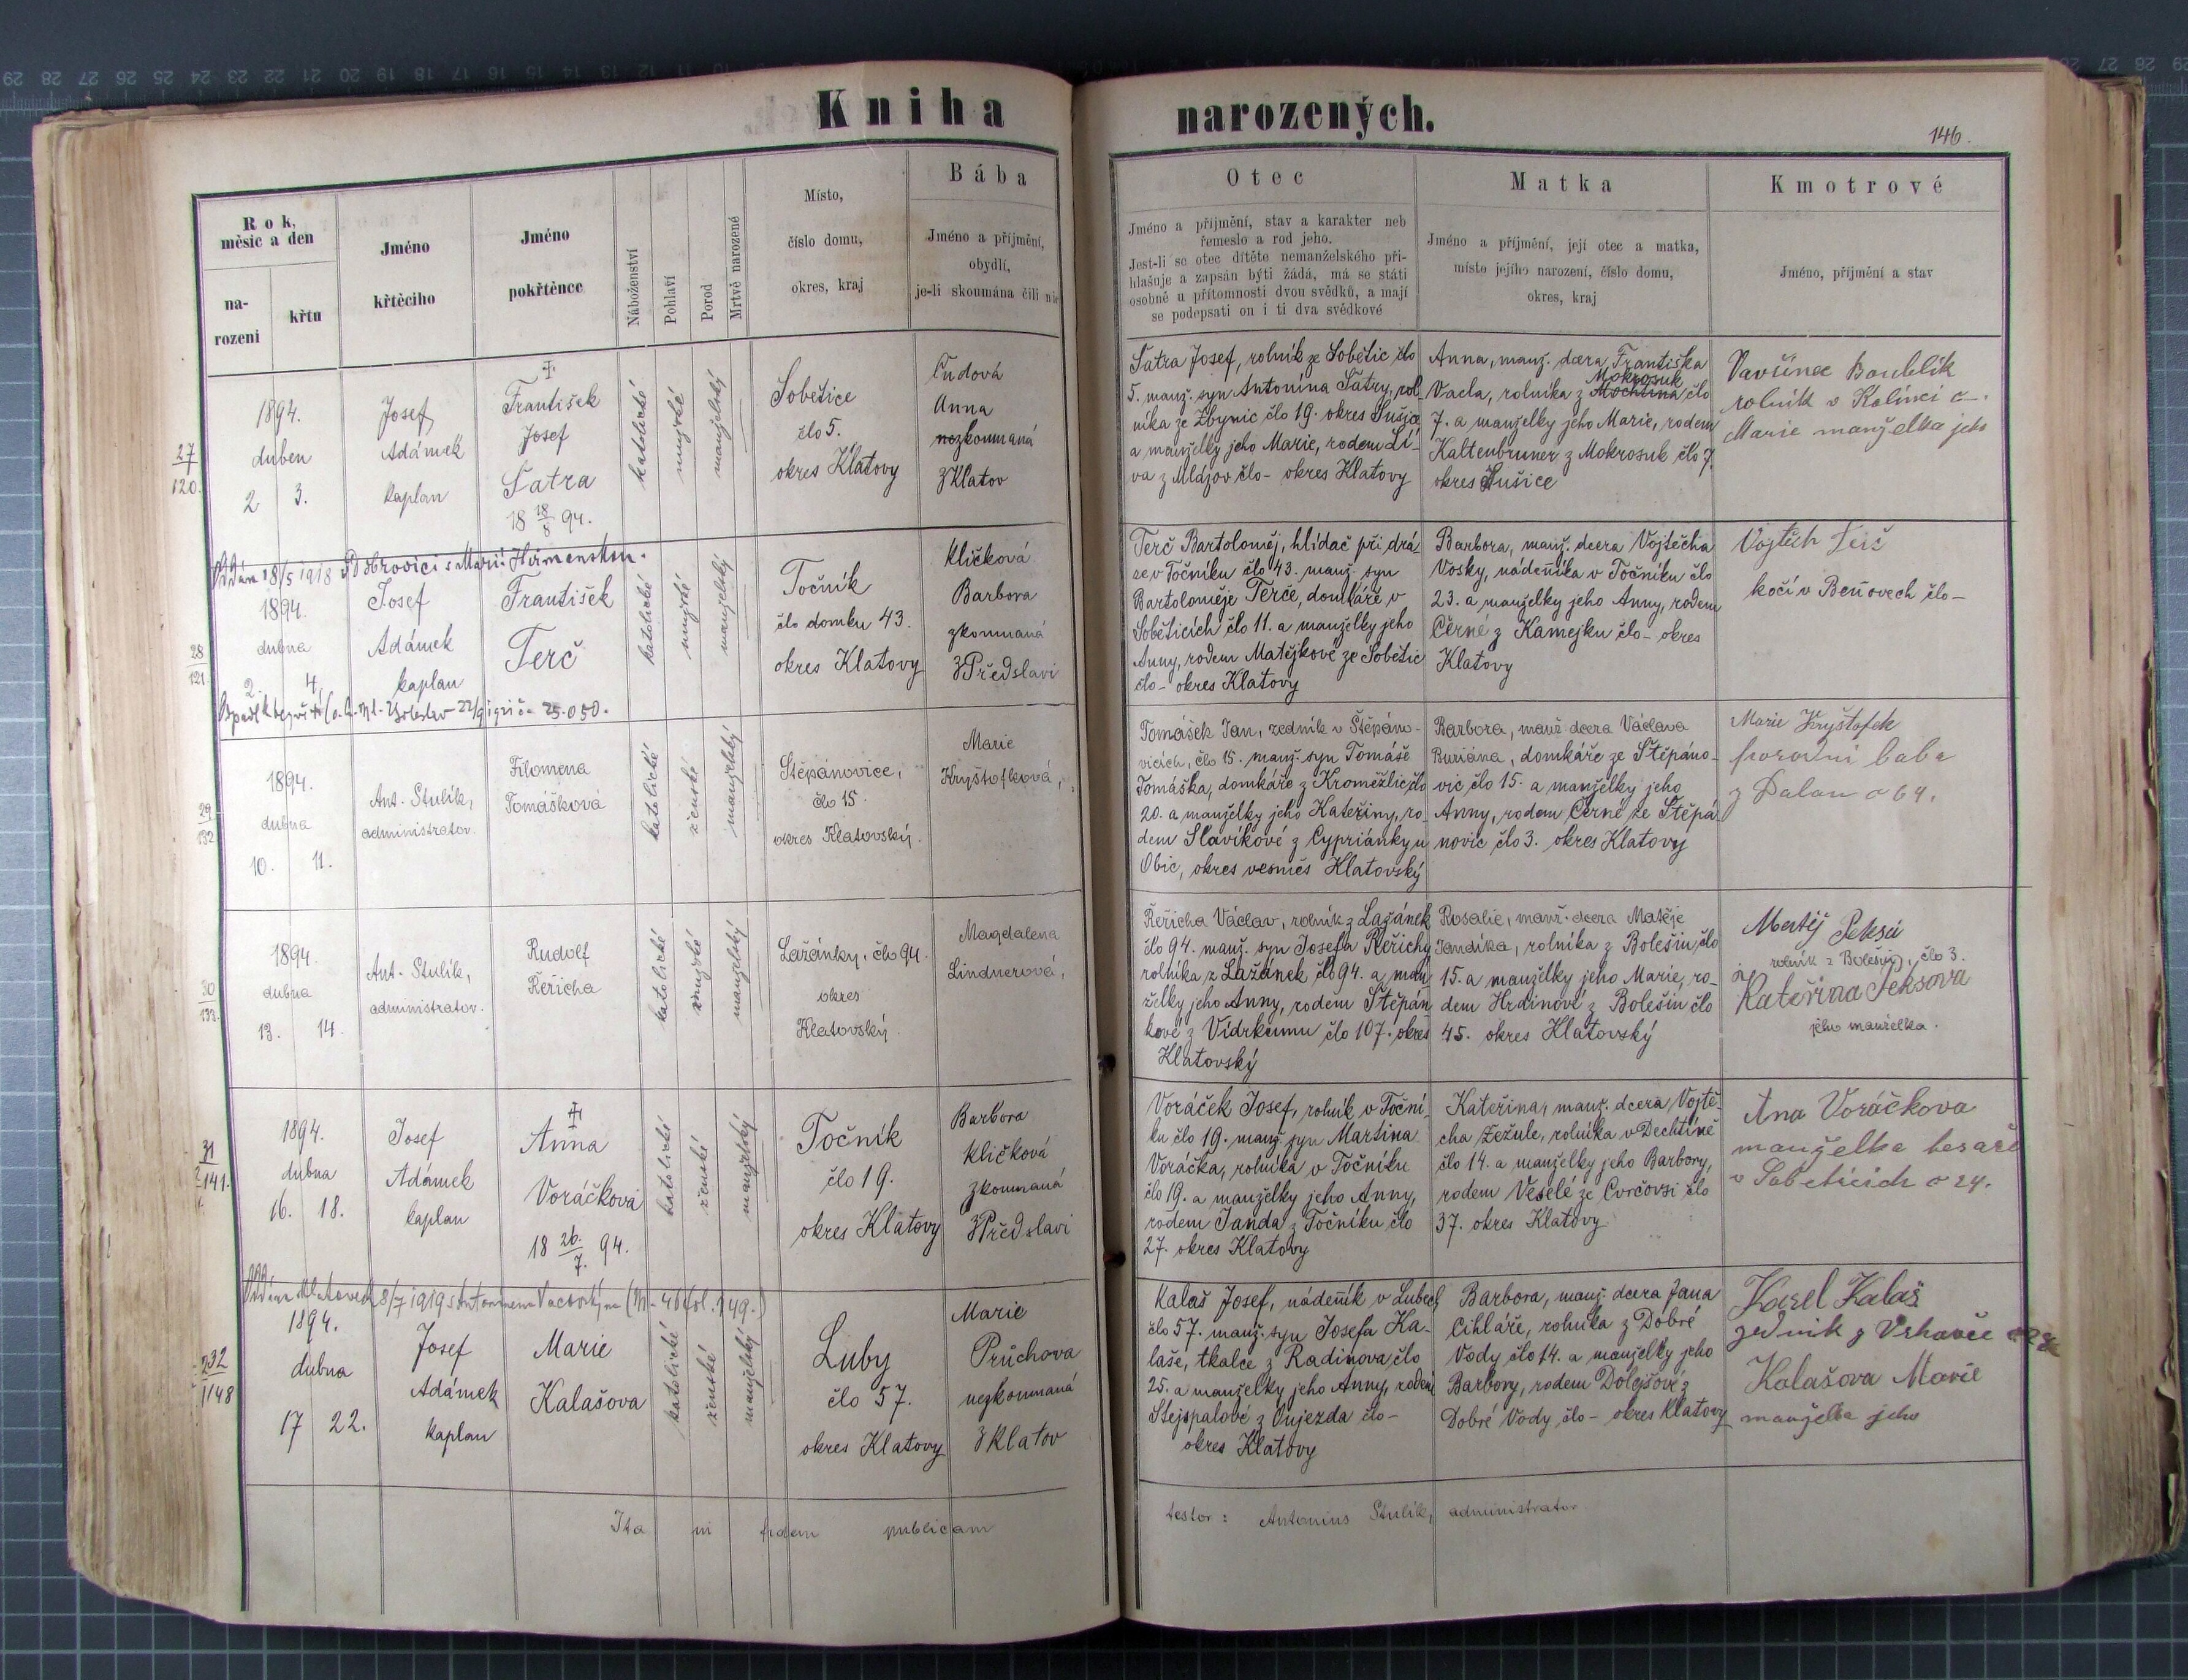 Kniha narozených.
146.
Rok, měsíc a den
na-
rození
křtu
Jméno
křtěcího
Jméno
pokřtěnce
Náboženství
Pohlaví
Porod
Mrtvě narozené
Místo,
číslo domu,
okres, kraj
Bába
Jméno a příjmění,
obydlí,
je-li skoumána čili nic
Otec
Jméno a příjmění, stav a karakter neb
řemeslo a rod jeho.
Jest-li se otec dítěte nemanželského při-
hlašuje a zapsán býti žádá, má se státi
osobně u přítomnosti dvou svědků, a mají
se podepsati on i ti dva svědkové
Matka
Jméno a příjmění, její otec a matka,
místo jejího narození, číslo domu,
okres, kraj
Kmotrové
Jméno, příjmění a stav
27
120.
1894.
duben
2 3.
Josef
Adámek
kaplan
František
Josef
Šatra
18 18/8 94.
katolické
mužské
manželský
Sobětice
člo 5.
okres Klatovy
Čudová
Anna
nezkoumaná
z Klatov
Šatra Josef, rolník ze Sobětic člo
5. manž. syn Antonína Šatry, rol-
níka ze Zbynic člo 19. okres Sušice
a manželky jeho Marie, rodem Lí-
va z Mlázov člo- okres Klatovy
Anna, manž. dcera Františka
Mokrosuk
Vacla, rolníka z Mochtína člo
7. a manželky jeho Marie, rodem
Kaltenbruner z Mokrosuk člo 7.
okres Sušice
Vavřinec Boublík
rolník v Kolinci č-.
Marie manželka jeho
Oddán 18/5 1918 v Dobrovici s Marií
28
121.
1894.
dubna
2. 4.
Josef
Adámek
kaplan
František
Terč
katolické
mužské
manželský
Točník
člo domku 43.
okres Klatovy
Kličková
Barbora
zkoumaná
z Předslavi
Terč Bartoloměj, hlídač při drá-
ze v Točníku člo 43. manž. syn
Bartoloměje Terče, domkáře v
Soběticích člo 11. a manželky jeho
Anny, rodem Matějkové ze Sobětic
člo- okres Klatovy
Barbora, manž. dcera Vojtěcha
Vosky, nádeníka v Točníku člo
23. a manželky jeho Anny, rodem
Černé z Kamejku člo- okres
Klatovy
Vojtěch Terč
kočí v Beňovech člo-
29.
132
1894.
dubna
10. 11.
Ant. Stulík,
administrator.
Filomena
Tomášková
katolické
ženské
manželský
Štěpánovice,
člo 15.
okres Klatovský.
Marie
Kryštofková,
Tomášek Jan, zedník v Štěpáno-
vicích, člo 15. manž. syn Tomáše
Tomáška, domkáře z Kroměžlic, člo
20. a manželky jeho Kateřiny, ro-
dem Slavíkové z Cypriánky u
Obic, okres vesměs Klatovský
Barbora, manž. dcera Václava
Buriána, domkáře ze Štěpáno-
vic člo 15. a manželky jeho
Anny, rodem Černé ze Štěpá-
novic člo 3. okres Klatovy
Marie Kryštofek
porodní baba
z Dalan č 64.
30
133.
1894.
dubna
13. 14.
Ant. Stulík,
administrator.
Rudolf
Řeřicha
katolické
mužské
manželský
Lažánky, člo 94.
okres
Klatovský.
Magdalena
Lindnerová,
Řeřicha Václav, rolník z Lažánek
člo 94. manž. syn Josefa Řeřichy
rolníka z Lažánek člo 94. a man-
želky jeho Anny, rodem Štěpán-
kové z Vidrkumu člo 107. okres
Klatovský
Rosalie, manž. dcera Matěje
Jandíka, rolníka z Bolešin, člo
15. a manželky jeho Marie, ro-
dem Hrdinové z Bolešin člo
45. okres Klatovský
Matěj
rolník z Bolešin, člo 3.
Kateřina
jeho manželka.
31
141.
1894.
dubna
16. 18.
Josef
Adámek
kaplan
Anna
Voráčková
18 26./7. 94.
katolické
ženské
manželský
Točník
člo 19.
okres Klatovy
Barbora
Kličková
zkoumaná
z Předslavi
Voráček Josef, rolník v Toční-
ku člo 19. manž. syn Martina
Voráčka, rolníka v Točníku
člo 19. a manželky jeho Anny,
rodem Janda z Točníku člo
27. okres Klatovy
Kateřina, manž. dcera Vojtě-
cha Žežule, rolníka v Dechtíně
člo 14. a manželky jeho Barbory,
rodem Veselé ze Cvrčovsi člo
37. okres Klatovy.
Ana Voráčkova
manželka
v Sobeticich č 24.
8/7 1919 s Antonínem
32
148
1894.
dubna
17 22.
Josef
Adámek
kaplan
Marie
Kalašova
katolické
ženské
manželský
Luby
člo 57.
okres Klatovy
Marie
Průchova
nezkoumaná
z Klatov
Kalaš Josef, nádeník v Lubech
člo 57. manž. syn Josefa Ka-
laše, tkalce z Radinova člo
25. a manželky jeho Anny, rodem
Stejspalové z Oujezda člo-
okres Klatovy
Barbora, manž. dcera Jana
Cihláře, rolníka z Dobré
Vody člo 14. a manželky jeho
Barbory, rodem Dolejšové z
Dobré Vody člo- okres Klatovy
Karel Kalaš
zedník z
Kalašova Marie
manželka jeho
Ita in fidem publicam
testor: Antonius Stulík, administrator